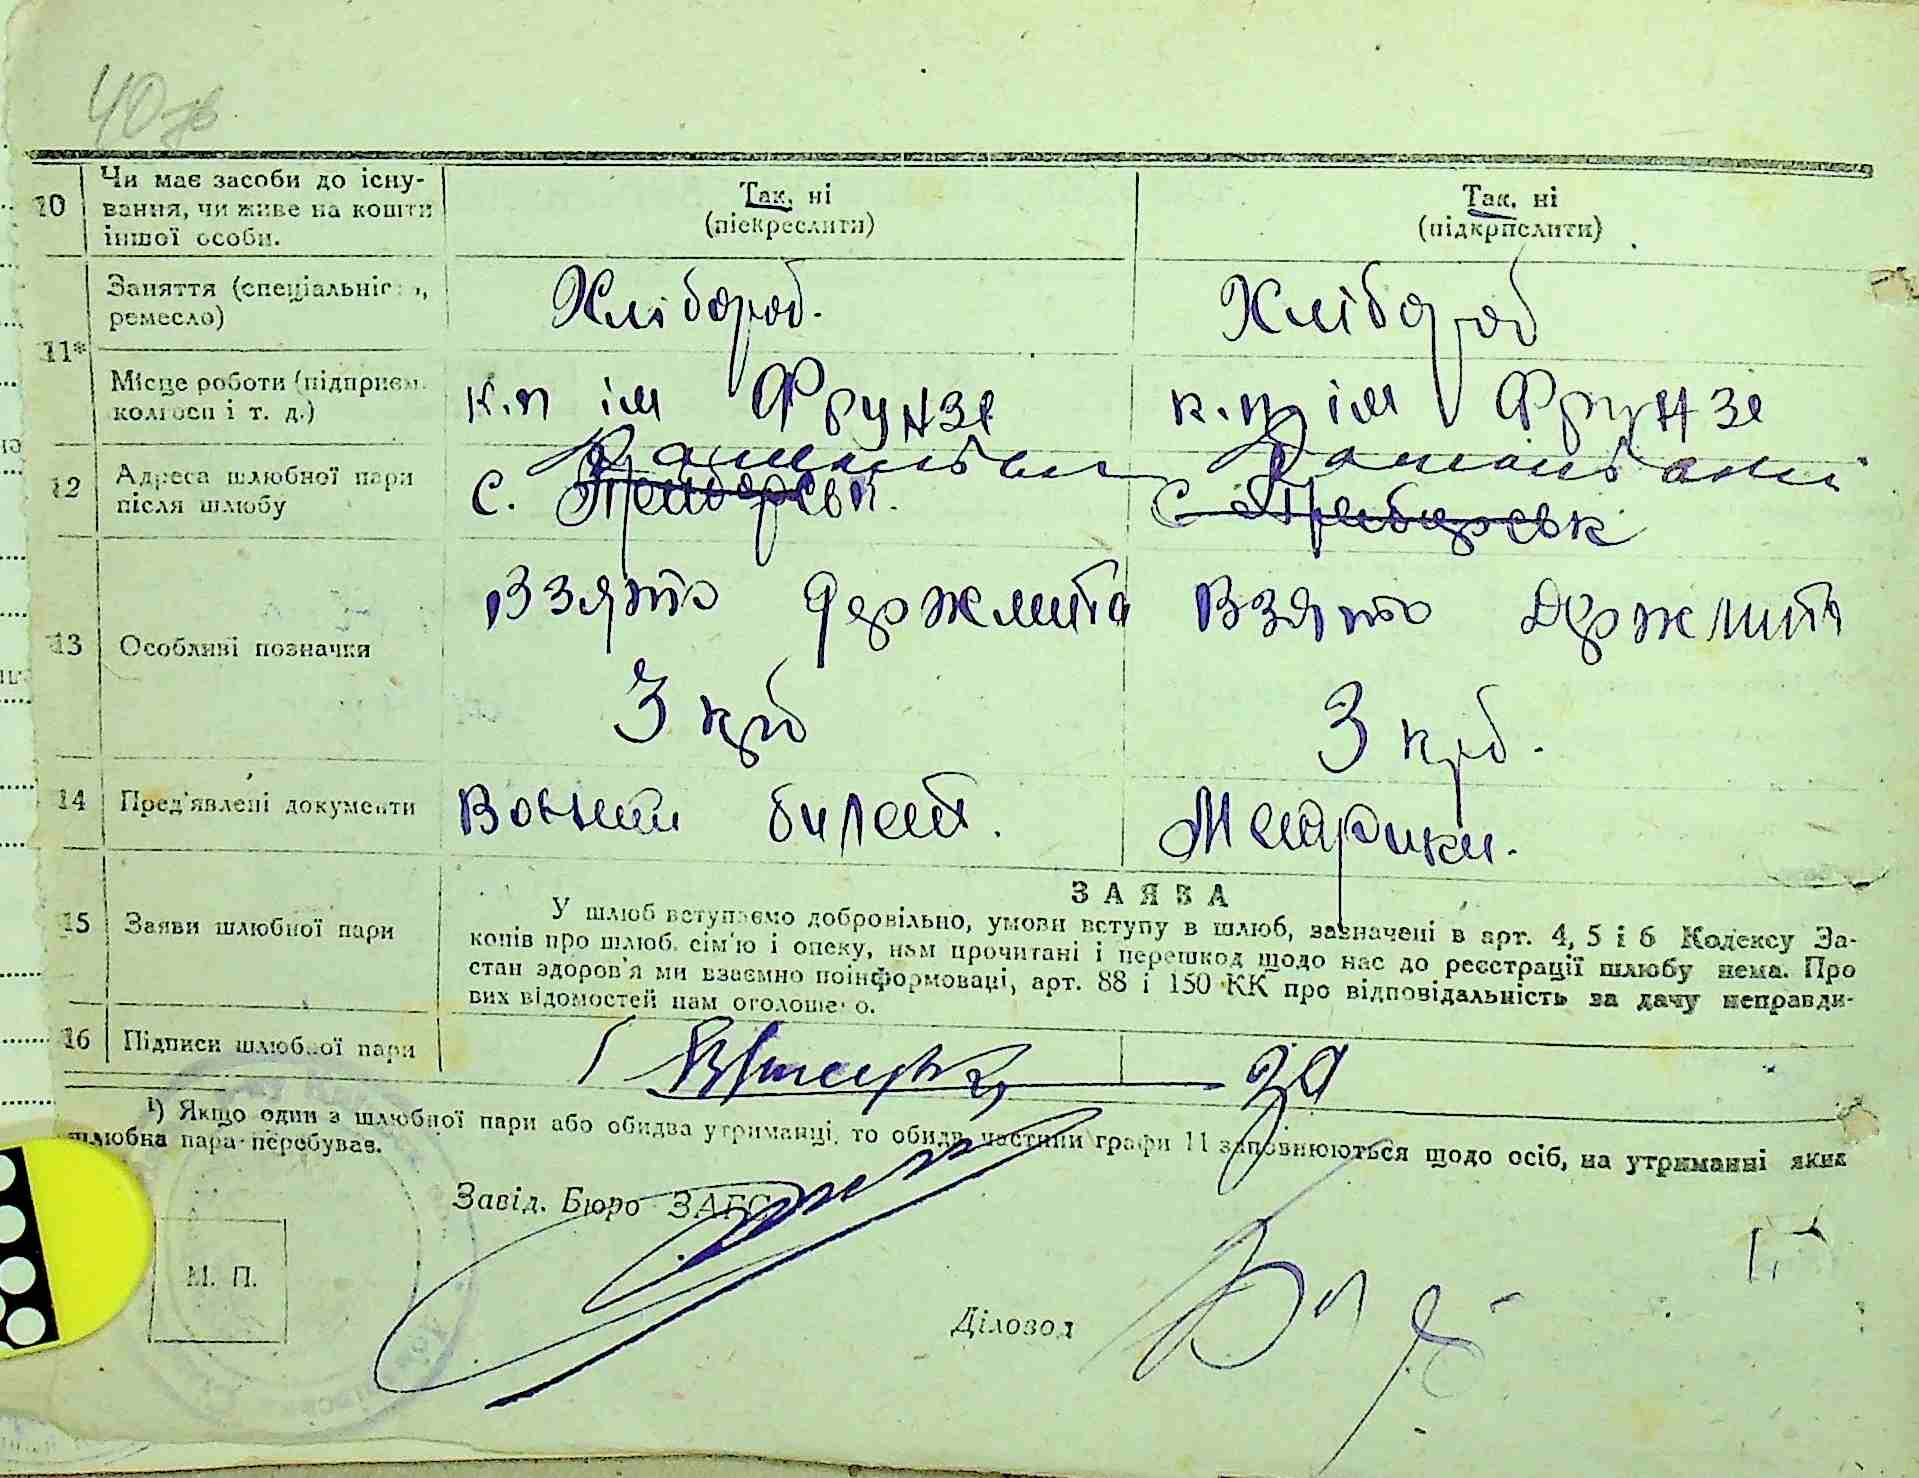 40 зв
10 Чи має засоби до існу-
вання, чи живе на кошти
іншої особи.
Так, ні
(піскреслити)
Так, ні
(підкрпслити)
11* Заняття (спеціальність,
ремесло)
Хлібороб.
Хлібороб
Місце роботи (підприєм.
колгосп і т. д.)
к.п ім Фрунзе
к.п ім Фрунзе
12 Адреса шлюбної пари
після шлюбу
с.
с
13 Особливі позначки
Взято держмита
Взято держмита
3 крб
3 крб.
14 Пред'явлені документи
Воєний билет.
Метрики.
15 Заяви шлюбної пари
ЗАЯВА
У шлюб вступаємо добровільно, умови вступу в шлюб, зазначені в арт. 4, 5 і 6 Кодексу За-
конів про шлюб, сім'ю і опеку, нам прочитані і перешкод щодо нас до реєстрації шлюбу нема. Про
стан здоров'я ми взаємно поінформовані, арт. 88 і 150 КК про відповідальність за дачу неправди-
вих відомостей нам оголошено.
16 Підписи шлюбної пари
¹) Якщо один з шлюбної пари або обидва утриманці, то обидв частини графи 11 заповнюються щодо осіб, на утриманні яких
шлюбна пара перебуває.
Завід. Бюро ЗАГС
М. П.
Діловод